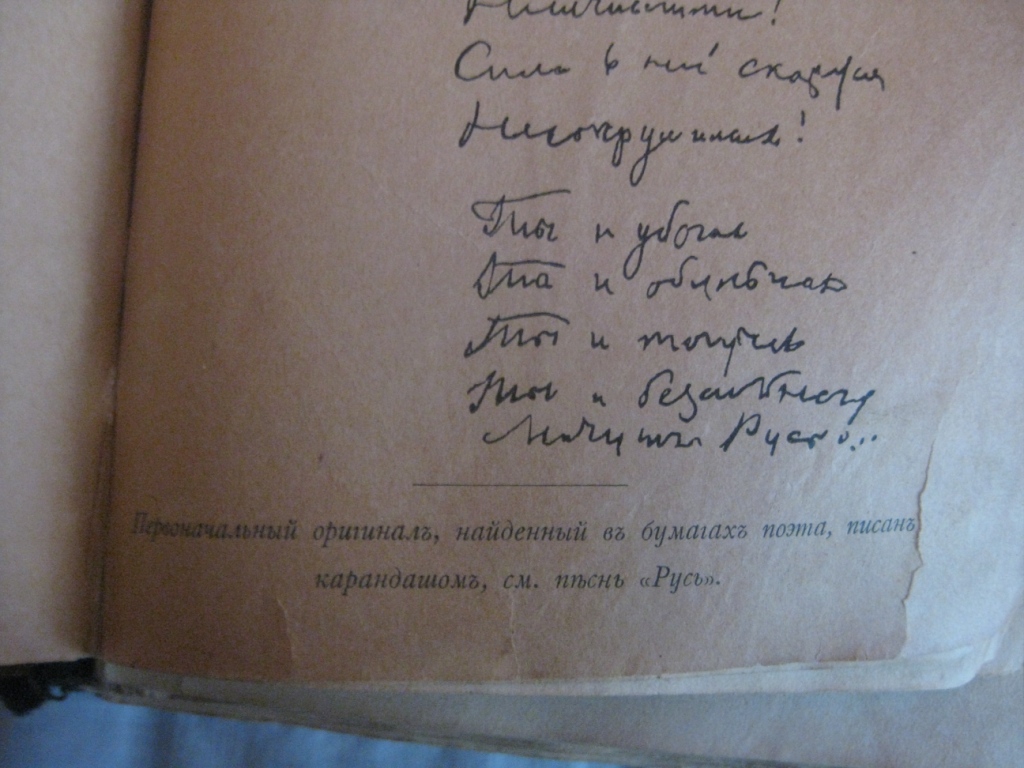 Неисчислимая!
Сила в ней скажется
Несокрушимая!
Ты и убогая
Ты и обильная
Ты и могучая
Ты и безсильная
Матушка Русь!..
Первоначальный оригиналъ, найденный въ бумагахъ поэта, писанъ
карандашомъ, см. пѣснь «Русь».